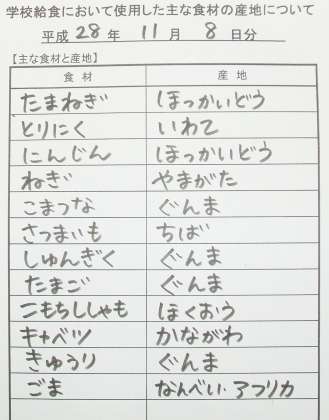 学校給食において使用した主な食材の産地について
平成 28 年 11 月 8 日分
【主な食材と産地】
食材 産地
たまねぎ ほっかいどう
とりにく いわて
にんじん ほっかいどう
ねぎ やまがた
こまつな ぐんま
さつまいも ちば
しゅんぎく ぐんま
たまご ぐんま
こもちししゃも ほくおう
キャベツ かながわ
きゅうり ぐんま
ごま なんべい アフリカ